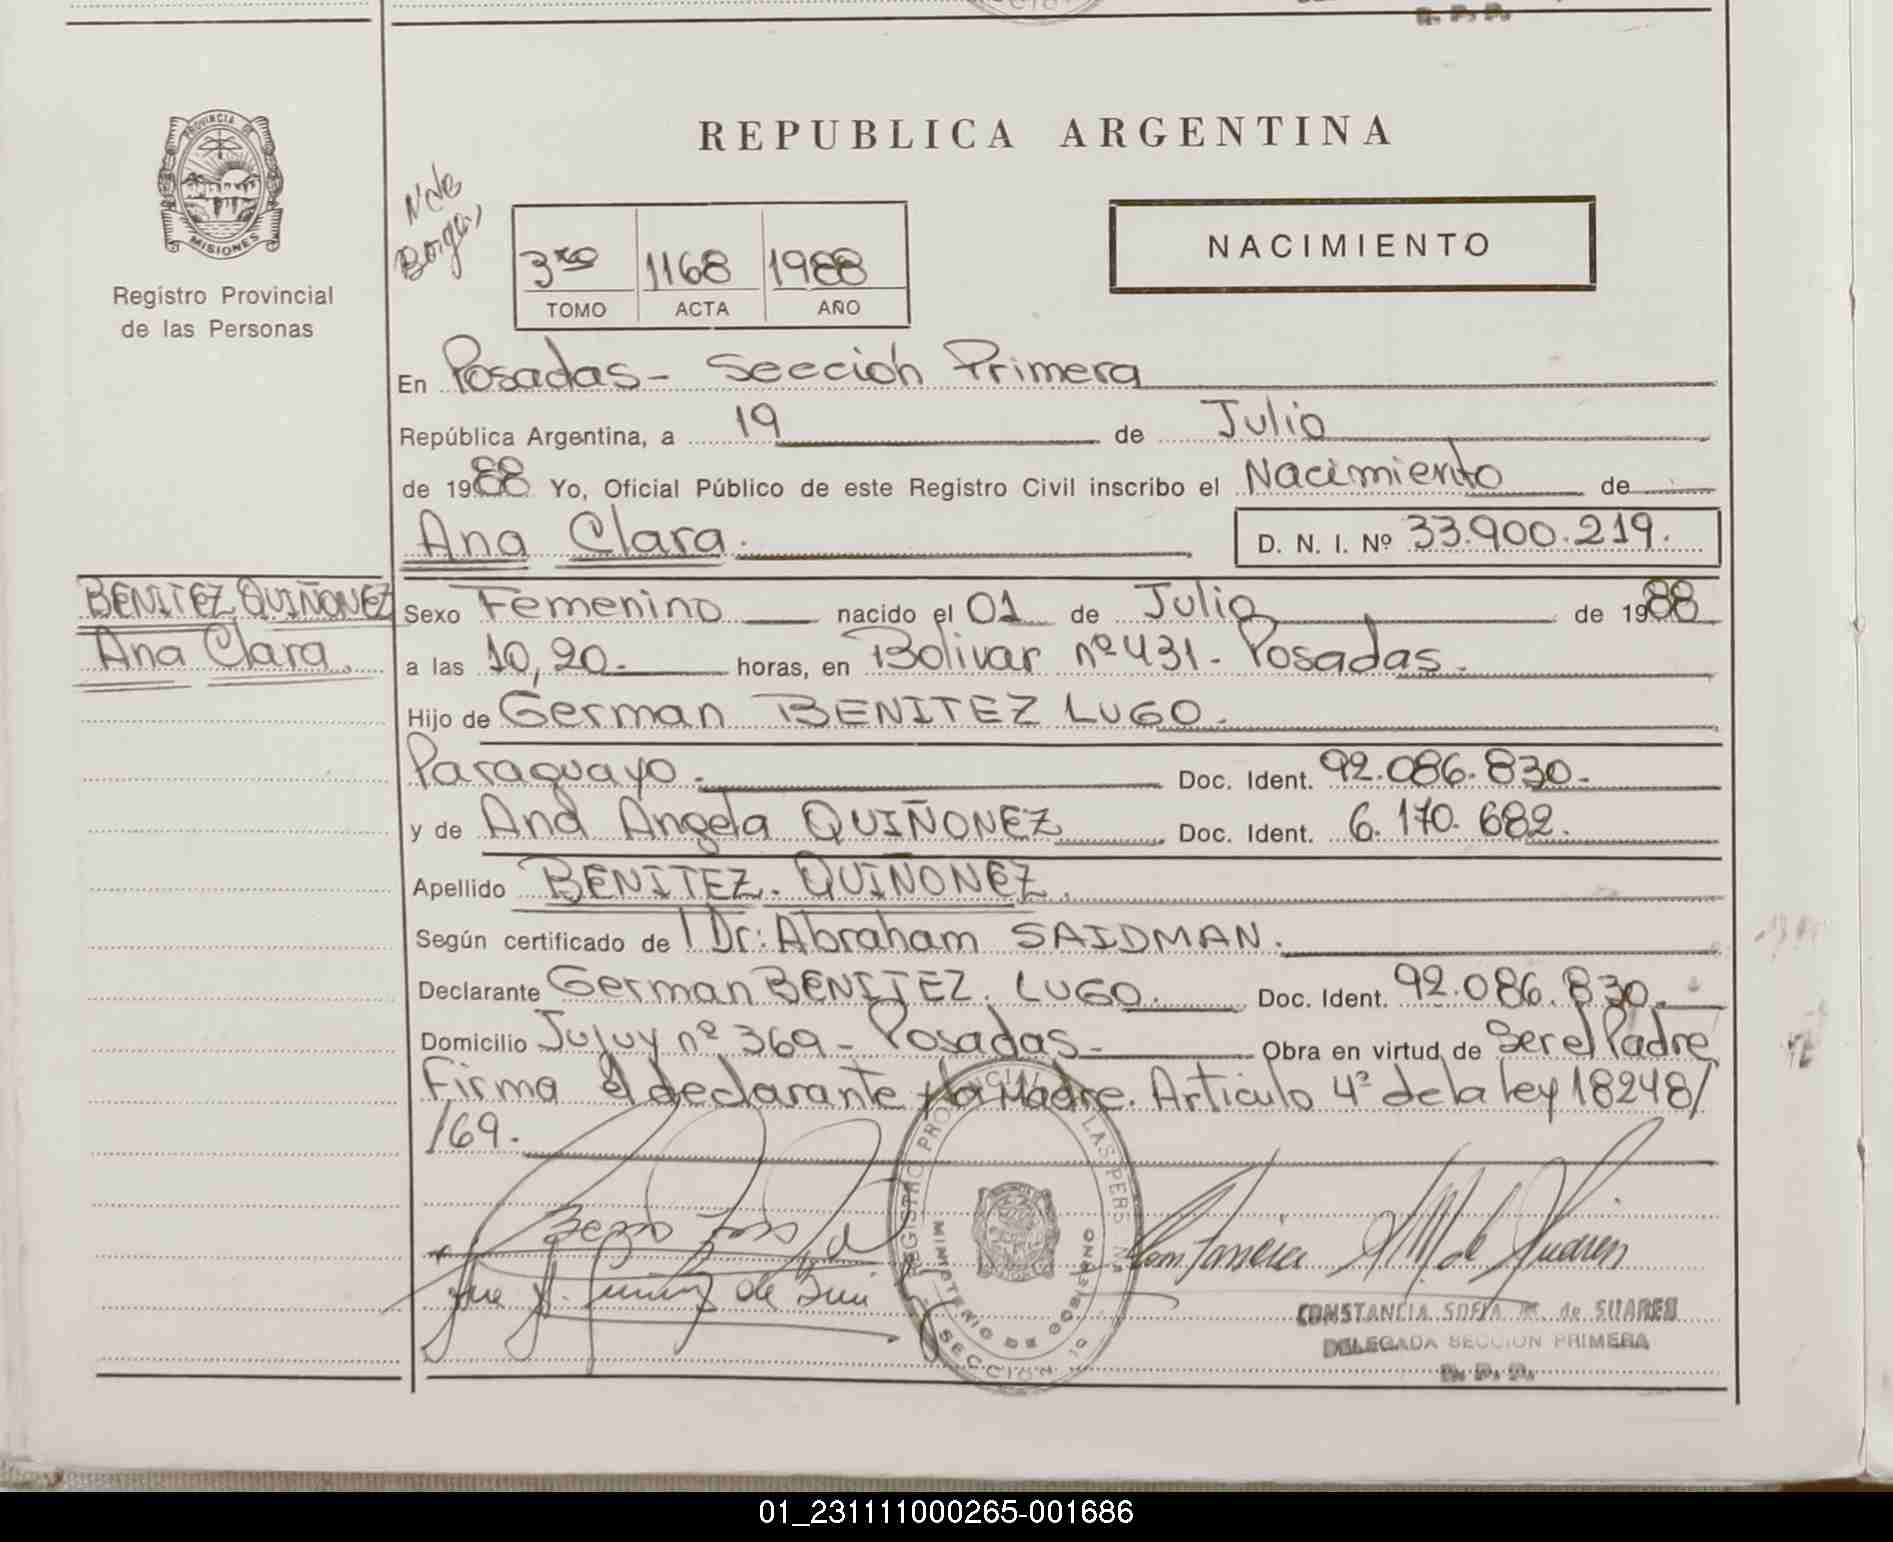 R. P. P.
PROVINCIA DE
MISIONES
Registro Provincial
de las Personas
REPUBLICA ARGENTINA
NACIMIENTO
3ro 1168 1988
TOMO ACTA AÑO
En Posadas - Sección Primera
República Argentina, a 19 de Julio
de 1988 Yo, Oficial Público de este Registro Civil inscribo el Nacimiento de
Ana Clara. D. N. I. Nº 33.900.219.
BENITEZ QUIÑONEZ
Ana Clara.
Sexo Femenino nacido el 01 de Julio de 1988
a las 10,20. horas, en Bolivar nº 431 - Posadas.
Hijo de German BENITEZ LUGO.
Paraguayo. Doc. Ident. 92.086.830.
y de Ana Angela QUIÑONEZ Doc. Ident. 6.170.682.
Apellido BENITEZ. QUIÑONEZ.
Según certificado de Dr: Abraham SAIDMAN.
Declarante German BENITEZ. LUGO. Doc. Ident. 92.086.830.
Domicilio Jujuy nº 369 - Posadas - Obra en virtud de Ser el Padre
Firma el declarante y la Madre. Articulo 4º de la ley 18248/
/69.
MINISTERIO DE GOBIERNO
SECCION 1a
CONSTANCIA SOFIA M. de SUAREZ
DELEGADA SECCION PRIMERA
R. P. P.
01_231111000265-001686